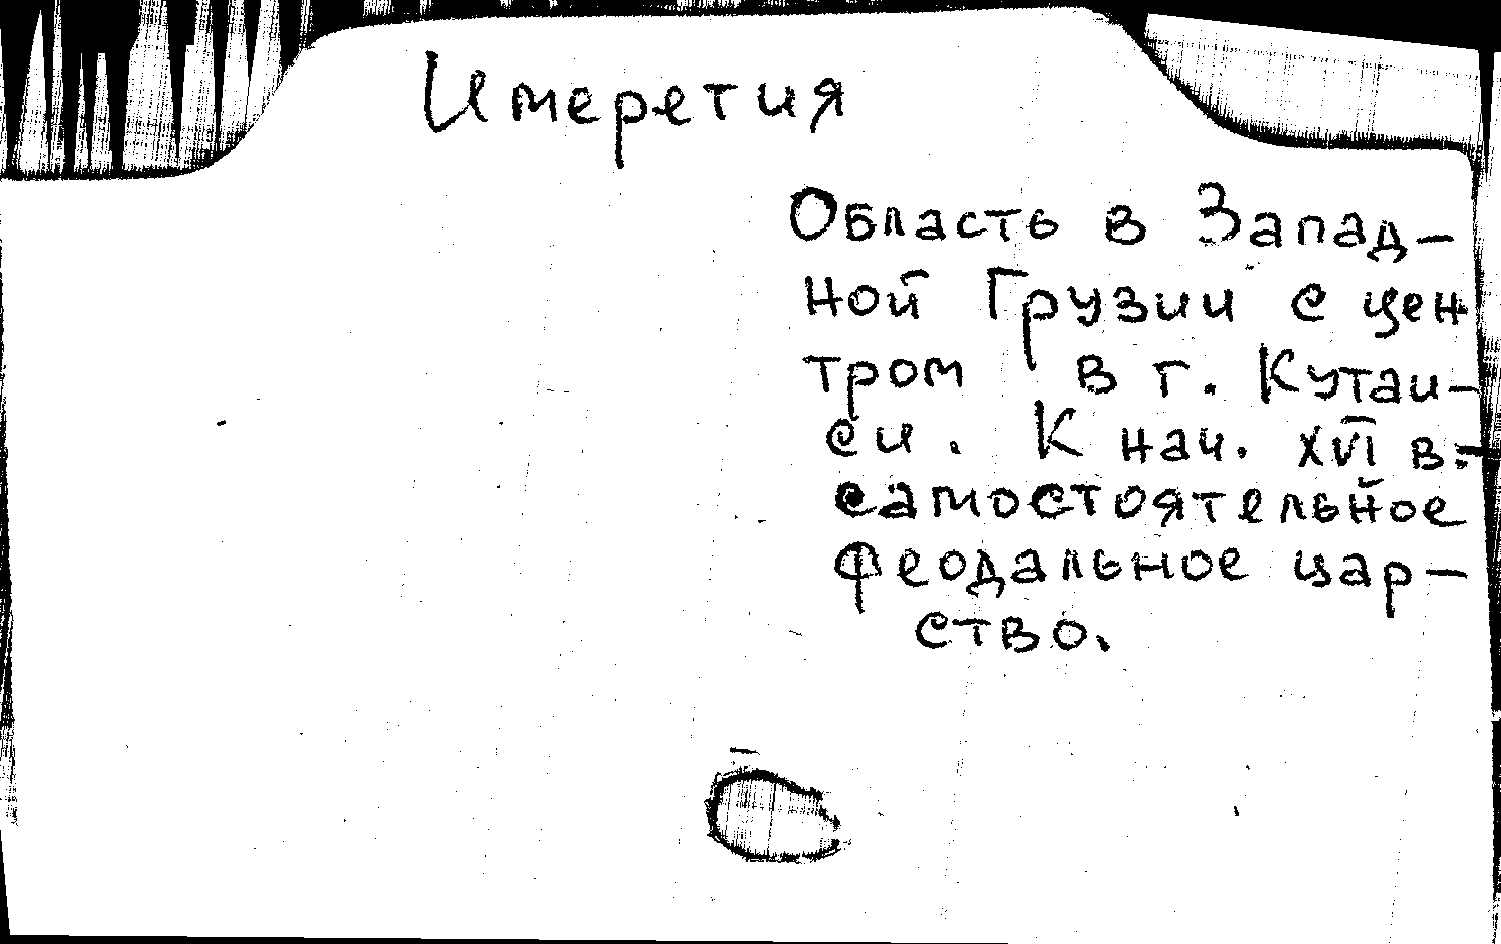 Имеретия
Область в Запад-
ной Грузии с цен
тром в г. Кутаи-
си. К нач. XVI в.-
самостоятельное
феодальное цар-
ство.